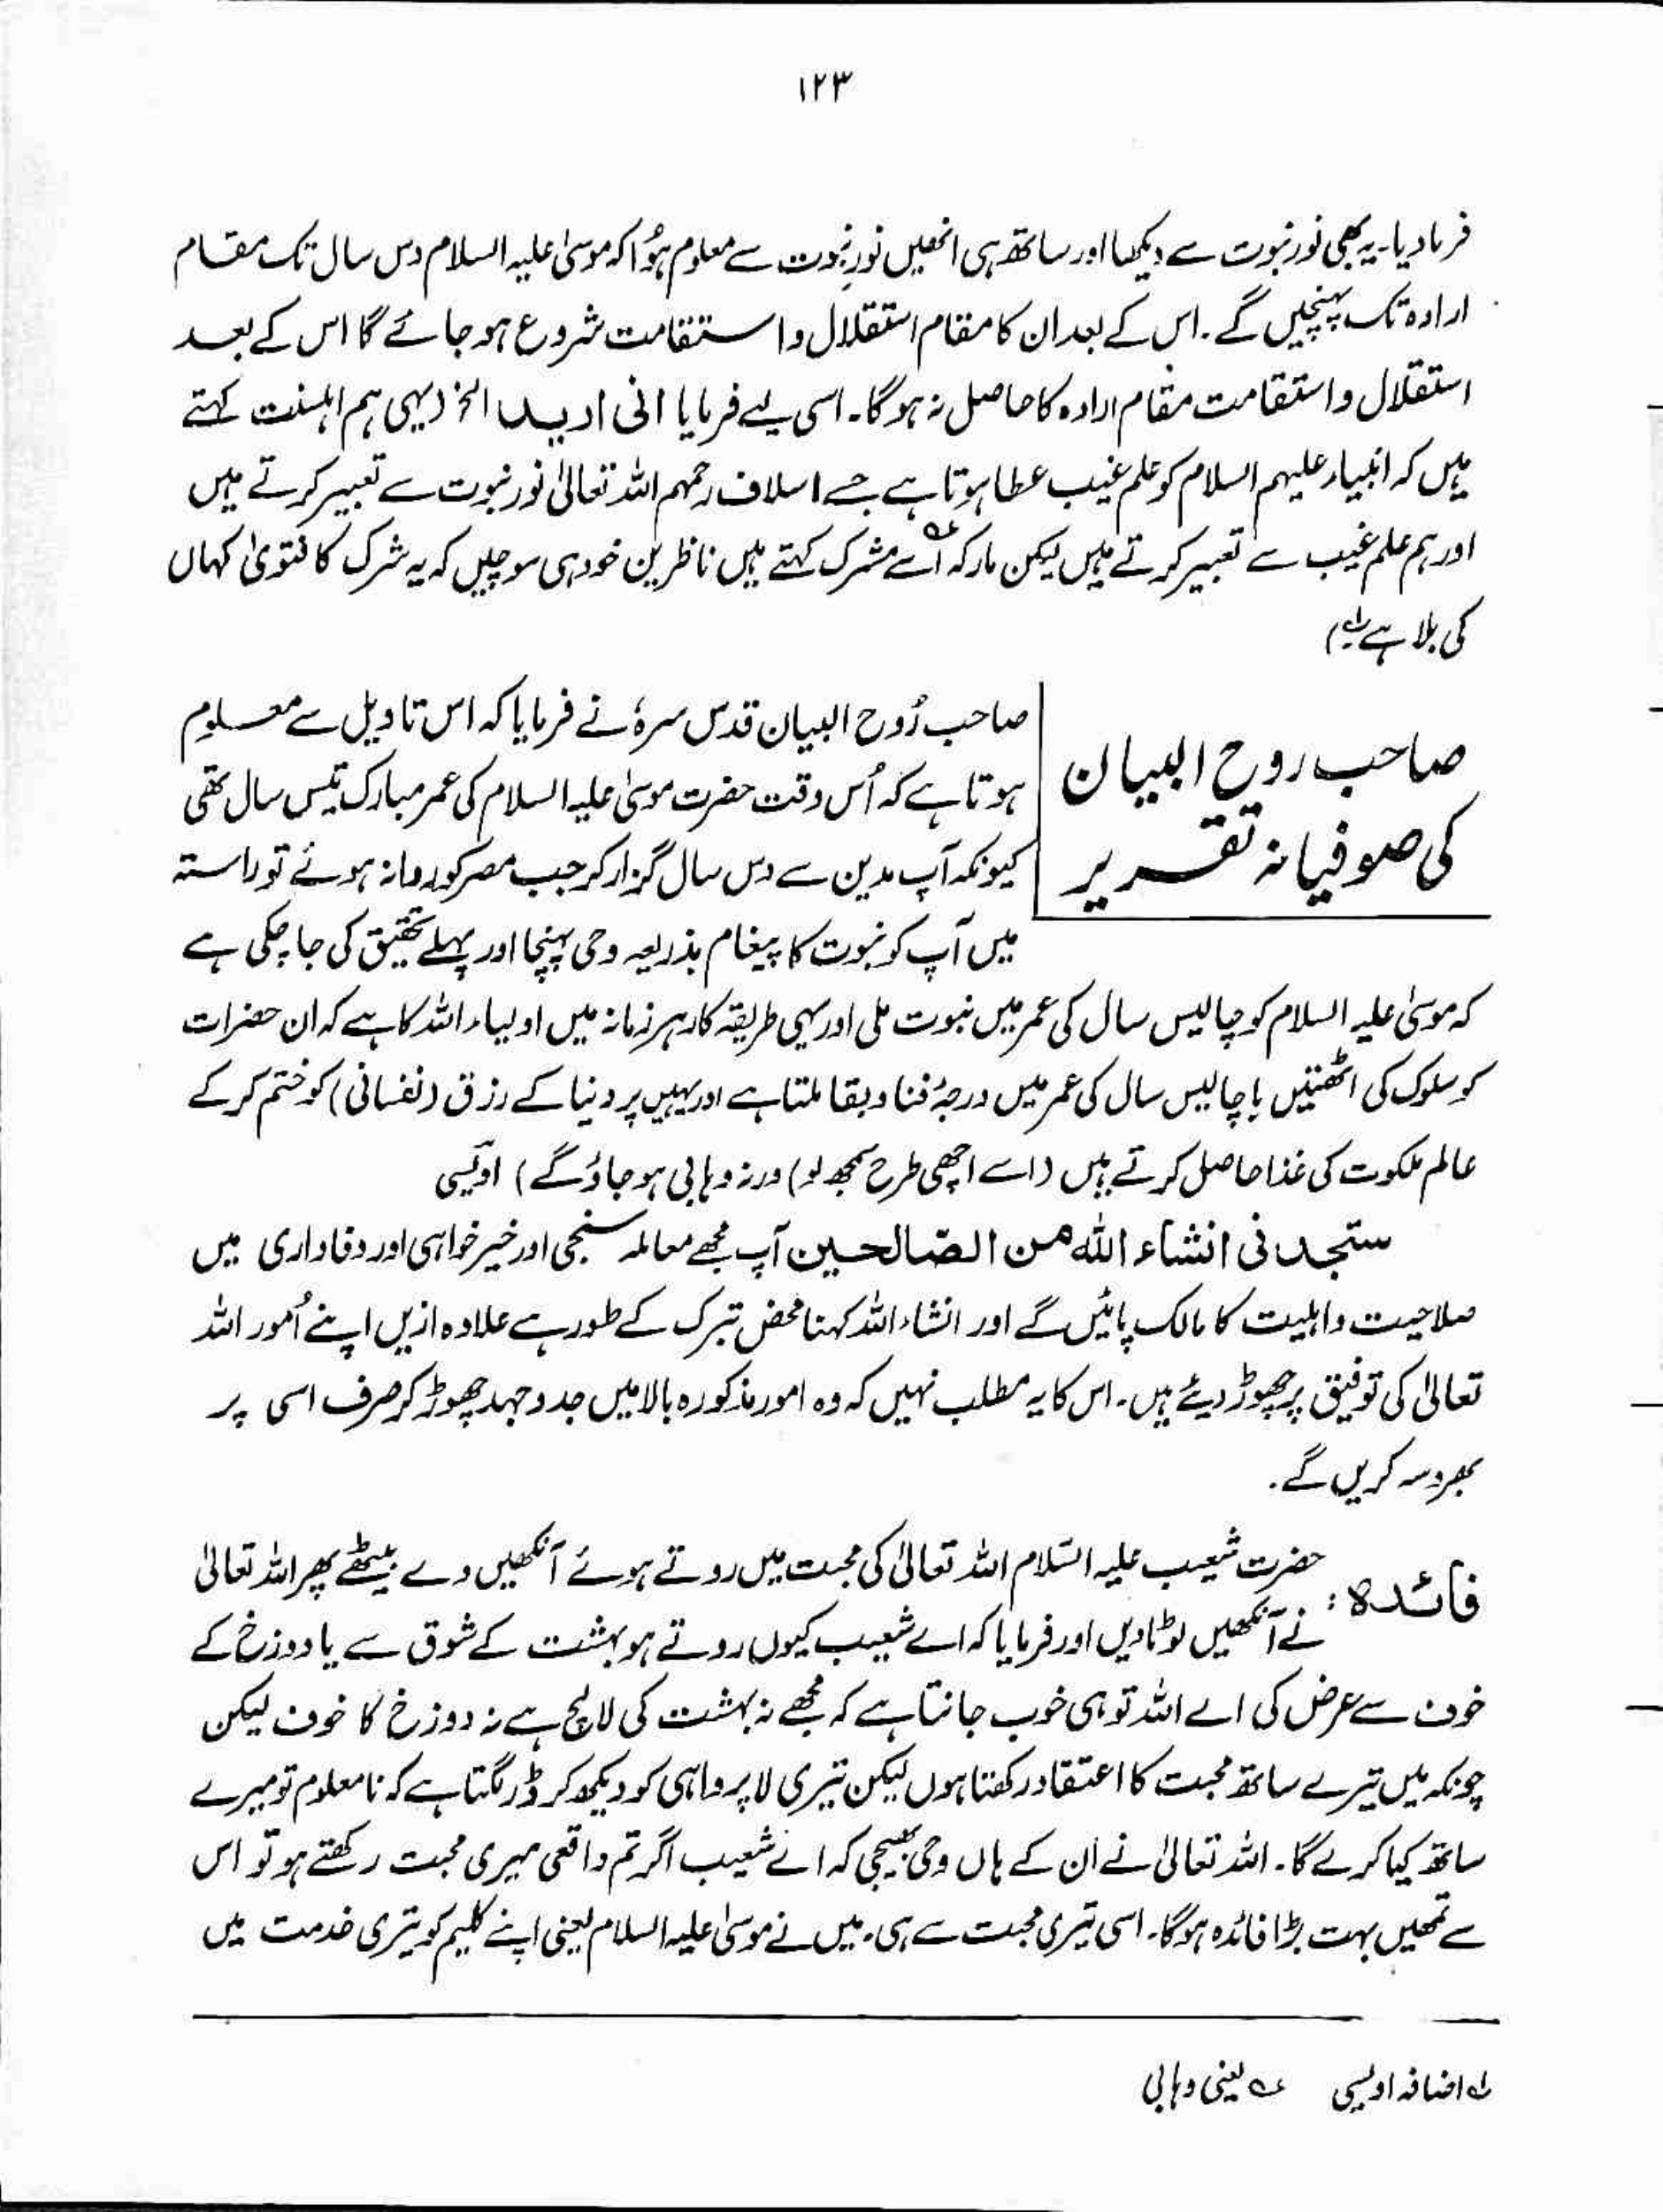 ۱۲۳
فرما دیا۔ یہ بھی نورِ نبوت سے دیکھا اور ساتھ ہی انھیں نورِ نبوت سے معلوم ہُوا کہ موسیٰ علیہ السلام دس سال تک مقام
ارادہ تک پہنچیں گے۔ اس کے بعد ان کا مقام استقلال و استقامت شروع ہو جائے گا اس کے بعد
استقلال و استقامت مقام ارادہ کا حاصل نہ ہو گا۔ اسی لیے فرمایا انی ارید الخ (یہی ہم اہلسنت کہتے
ہیں کہ انبیاء علیہم السلام کو علم غیب عطا ہوتا ہے جسے اسلاف رحمہم اللہ تعالیٰ نور نبوت سے تعبیر کرتے ہیں
اور ہم علم غیب سے تعبیر کرتے ہیں لیکن مارکہ اُسے مشرک کہتے ہیں ناظرین خود ہی سوچیں کہ یہ شرک کا فتویٰ کہاں
کی بلا ہے)
صاحب روح البیان
کی صوفیانہ تقریر
صاحب رُوح البیان قدس سرہٗ نے فرمایا کہ اس تاویل سے معلوم
ہوتا ہے کہ اُس وقت حضرت موسیٰ علیہ السلام کی عمر مبارک تیس سال تھی
کیونکہ آپ مدین سے دس سال گزار کر جب مصر کو روانہ ہوئے تو راستہ
میں آپ کو نبوت کا پیغام بذریعہ وحی پہنچا اور پہلے تحقیق کی جا چکی ہے
کہ موسیٰ علیہ السلام کو چالیس سال کی عمر میں نبوت ملی اور یہی طریقہ کار ہر زمانہ میں اولیاء اللہ کا ہے کہ ان حضرات
کو سلوک کی اٹھتیں یا چالیس سال کی عمر میں درجۂ فنا و بقا ملتا ہے اور یہیں پر دنیا کے رزق (نفسانی) کو ختم کر کے
عالم ملکوت کی غذا حاصل کرتے ہیں (اسے اچھی طرح سمجھ لو) ورنہ وہابی ہو جاؤ گے) اویسی
ستجدنی انشاء اللہ من الصّالحین آپ مجھے معاملہ سنجی اور خیر خواہی اور وفاداری میں
صلاحیت و اہلیت کا مالک پائیں گے اور انشاء اللہ کہنا محض تبرک کے طور ہے علاوہ ازیں اپنے اُمور اللہ
تعالیٰ کی توفیق پر چھوڑ دیئے ہیں۔ اس کا یہ مطلب نہیں کہ وہ امور مذکورہ بالا میں جدوجہد چھوڑ کر صرف اسی پر
بھروسہ کریں گے۔
فائدہ: حضرت شعیب علیہ السّلام اللہ تعالیٰ کی محبت میں روتے ہوئے آنکھیں دے بیٹھے پھر اللہ تعالیٰ
نے آنکھیں لوٹا دیں اور فرمایا کہ اے شعیب کیوں روتے ہو بہشت کے شوق سے یا دوزخ کے
خوف سے عرض کی اے اللہ تو ہی خوب جانتا ہے کہ مجھے نہ بہشت کی لالچ ہے نہ دوزخ کا خوف لیکن
چونکہ میں تیرے ساتھ محبت کا اعتقاد رکھتا ہوں لیکن تیری لاپرواہی کو دیکھ کر ڈر لگتا ہے کہ نامعلوم تو میرے
ساتھ کیا کرے گا۔ اللہ تعالیٰ نے ان کے ہاں وحی بھیجی کہ اے شعیب اگر تم واقعی میری محبت رکھتے ہو تو اس
سے تمھیں بہت بڑا فائدہ ہوگا۔ اسی تیری محبت سے ہی۔ میں نے موسیٰ علیہ السلام یعنی اپنے کلیم کو تیری خدمت میں
لہ اضافہ اویسی   عہ یعنی وہابی